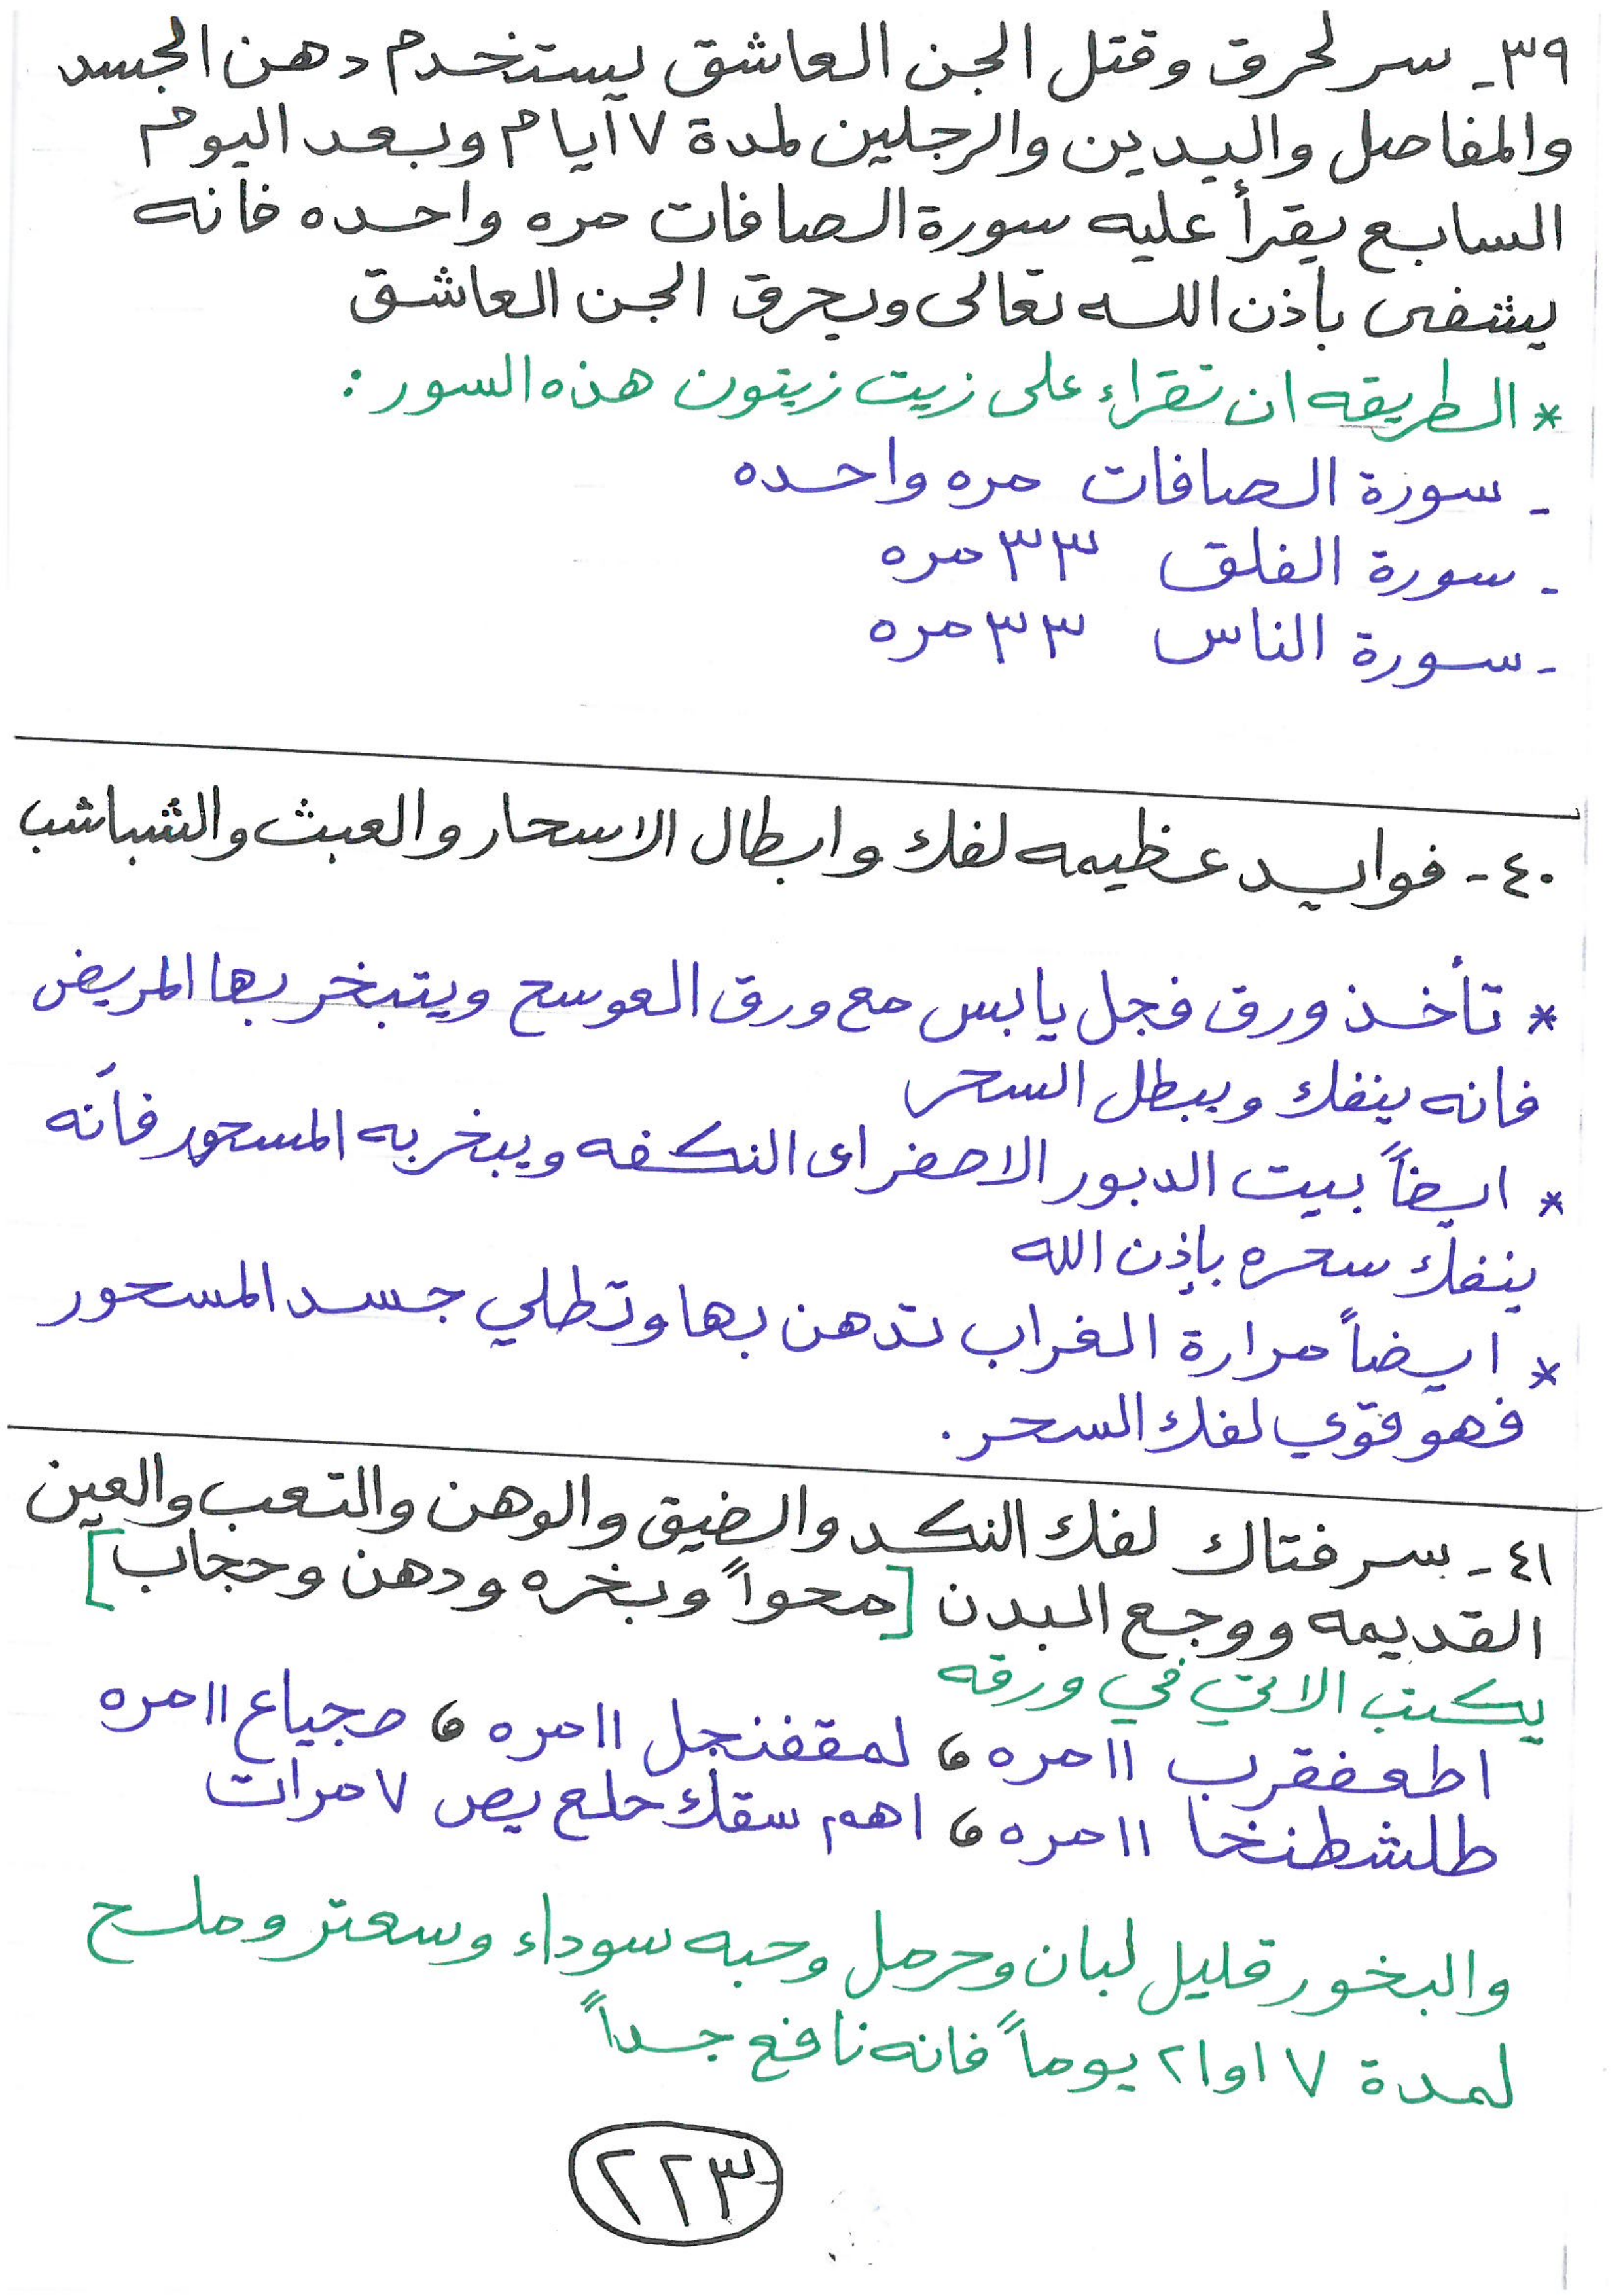 ٣٩- سر لحرق وقتل الجن العاشق يستخدم دهن الجسد
والمفاصل واليدين والرجلين لمدة ٧ آيام وبعد اليوم
السابع يقرأ عليه سورة الصافات مره واحده فانه
يشفى بأذن الله تعالى ويحرق الجن العاشق
* الطريقه ان تقراء على زيت زيتون هذه السور :
- سورة الصافات مره واحده
- سورة الفلق ٣٣ مره
- سورة الناس ٣٣ مره
٤٠- فوايد عظيمه لفك وابطال الاسحار والعبث والشباشب
* تأخذ ورق فجل يابس مع ورق العوسج ويتبخر بها المريض
فانه ينفك ويبطل السحر
* ايضاً بيت الدبور الاصفر اى النكفه ويبخر به المسحور فأنه
ينفك سحره بإذن الله
* ايضاً مرارة الغراب تدهن بها وتطلي جسد المسحور
فهو قوي لفك السحر .
٤١- سر فتاك لفك النكد والضيق والوهن والتعب والعين
القديمه ووجع البدن [محواً وبخره ودهن وحجاب]
يكتب الاتي في ورقه
اطعفقرب ١١ مره ، لمقفنجل ١١ مره ، صجياع ١١ مره
طلشطنخا ١١ مره ، اهم سقك حلع يص ٧ مرات
والبخور قليل لبان وحرمل وحبه سوداء وسعتر وملح
لمدة ٧ او ٢١ يوماً فانه نافع جداً
٢٢٣